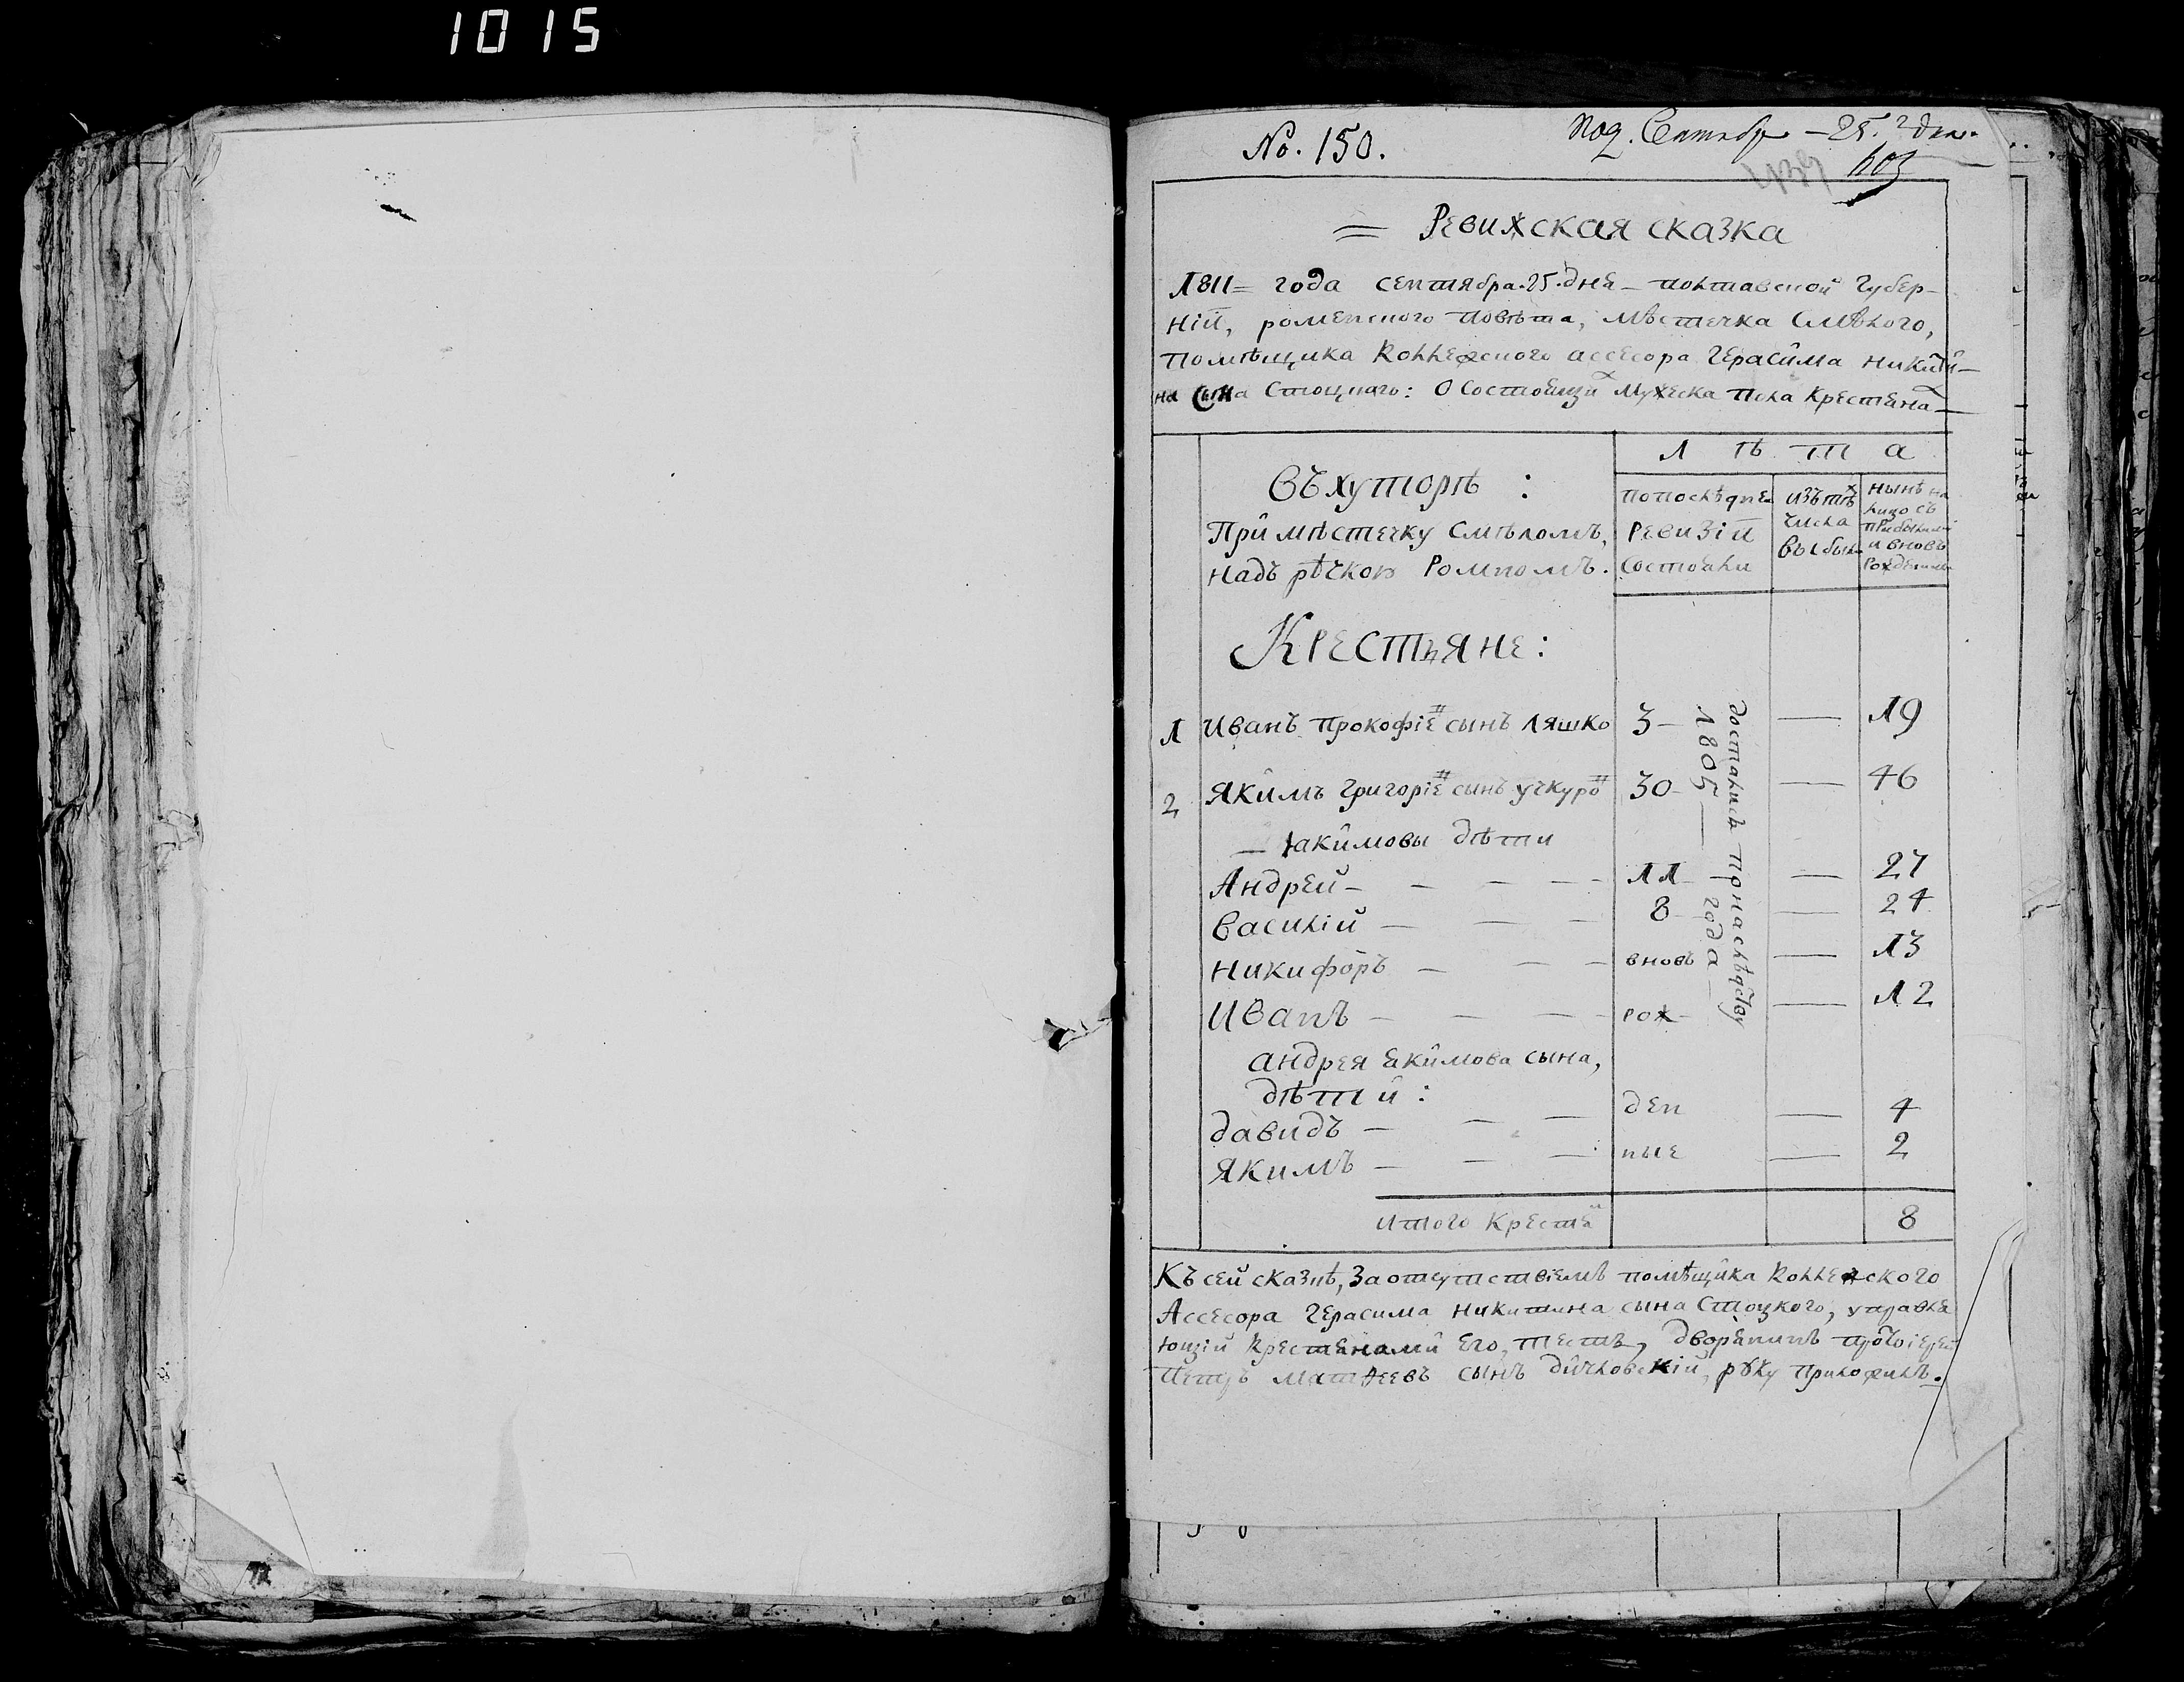 1015
No. 150.
Под. Сентябр – 25. дня.
439
603
= Ревижская сказка
1811= года сентября.25.дня – полтавской губер-
ніи, роменского повѣта, мѣстечка Смѣлого,
помѣщика коллежского ассесора герасима никити-
на сына Стоцкаго: О состоящихъ мужеска пола крестьянахъ
Л ѣ т а
Въ хуторѣ :
При мѣстечку Смѣломъ,
надъ рѣчкою Ромномъ.
по послѣдне
ревизіи
состояли
изъ тѣх
числа
выбыл
нынѣ на
лицо съ
прибылыми
и вновь
рожденными
Крестьяне:
1 Иванъ прокофіе сынъ ляшко 3 – — 19
2 Якимъ григоріе сынъ учкуро 30 – — 46
— Іакимовы дѣти
Андрей – – – – 11 — 27
Василій – – – 8 — 24
Никифоръ – – – вновь — 13
Иванъ – – – рож- — 12
достались по наслѣдству
1805 — года —
андрея Екимова сына,
дѣти :
давидъ – – – ден — 4
Якимъ – – – ные — 2
итого Крестья 8
Къ сей сказкѣ, За отсутствіемъ помѣщика коллежского
Ассесора герасима никитина сына Стоцкого, управля
ющій крестьянами его, тесть, дворянинъ протоіерей
Петръ матѳеевъ сынъ дичковскій, руку приложилъ.